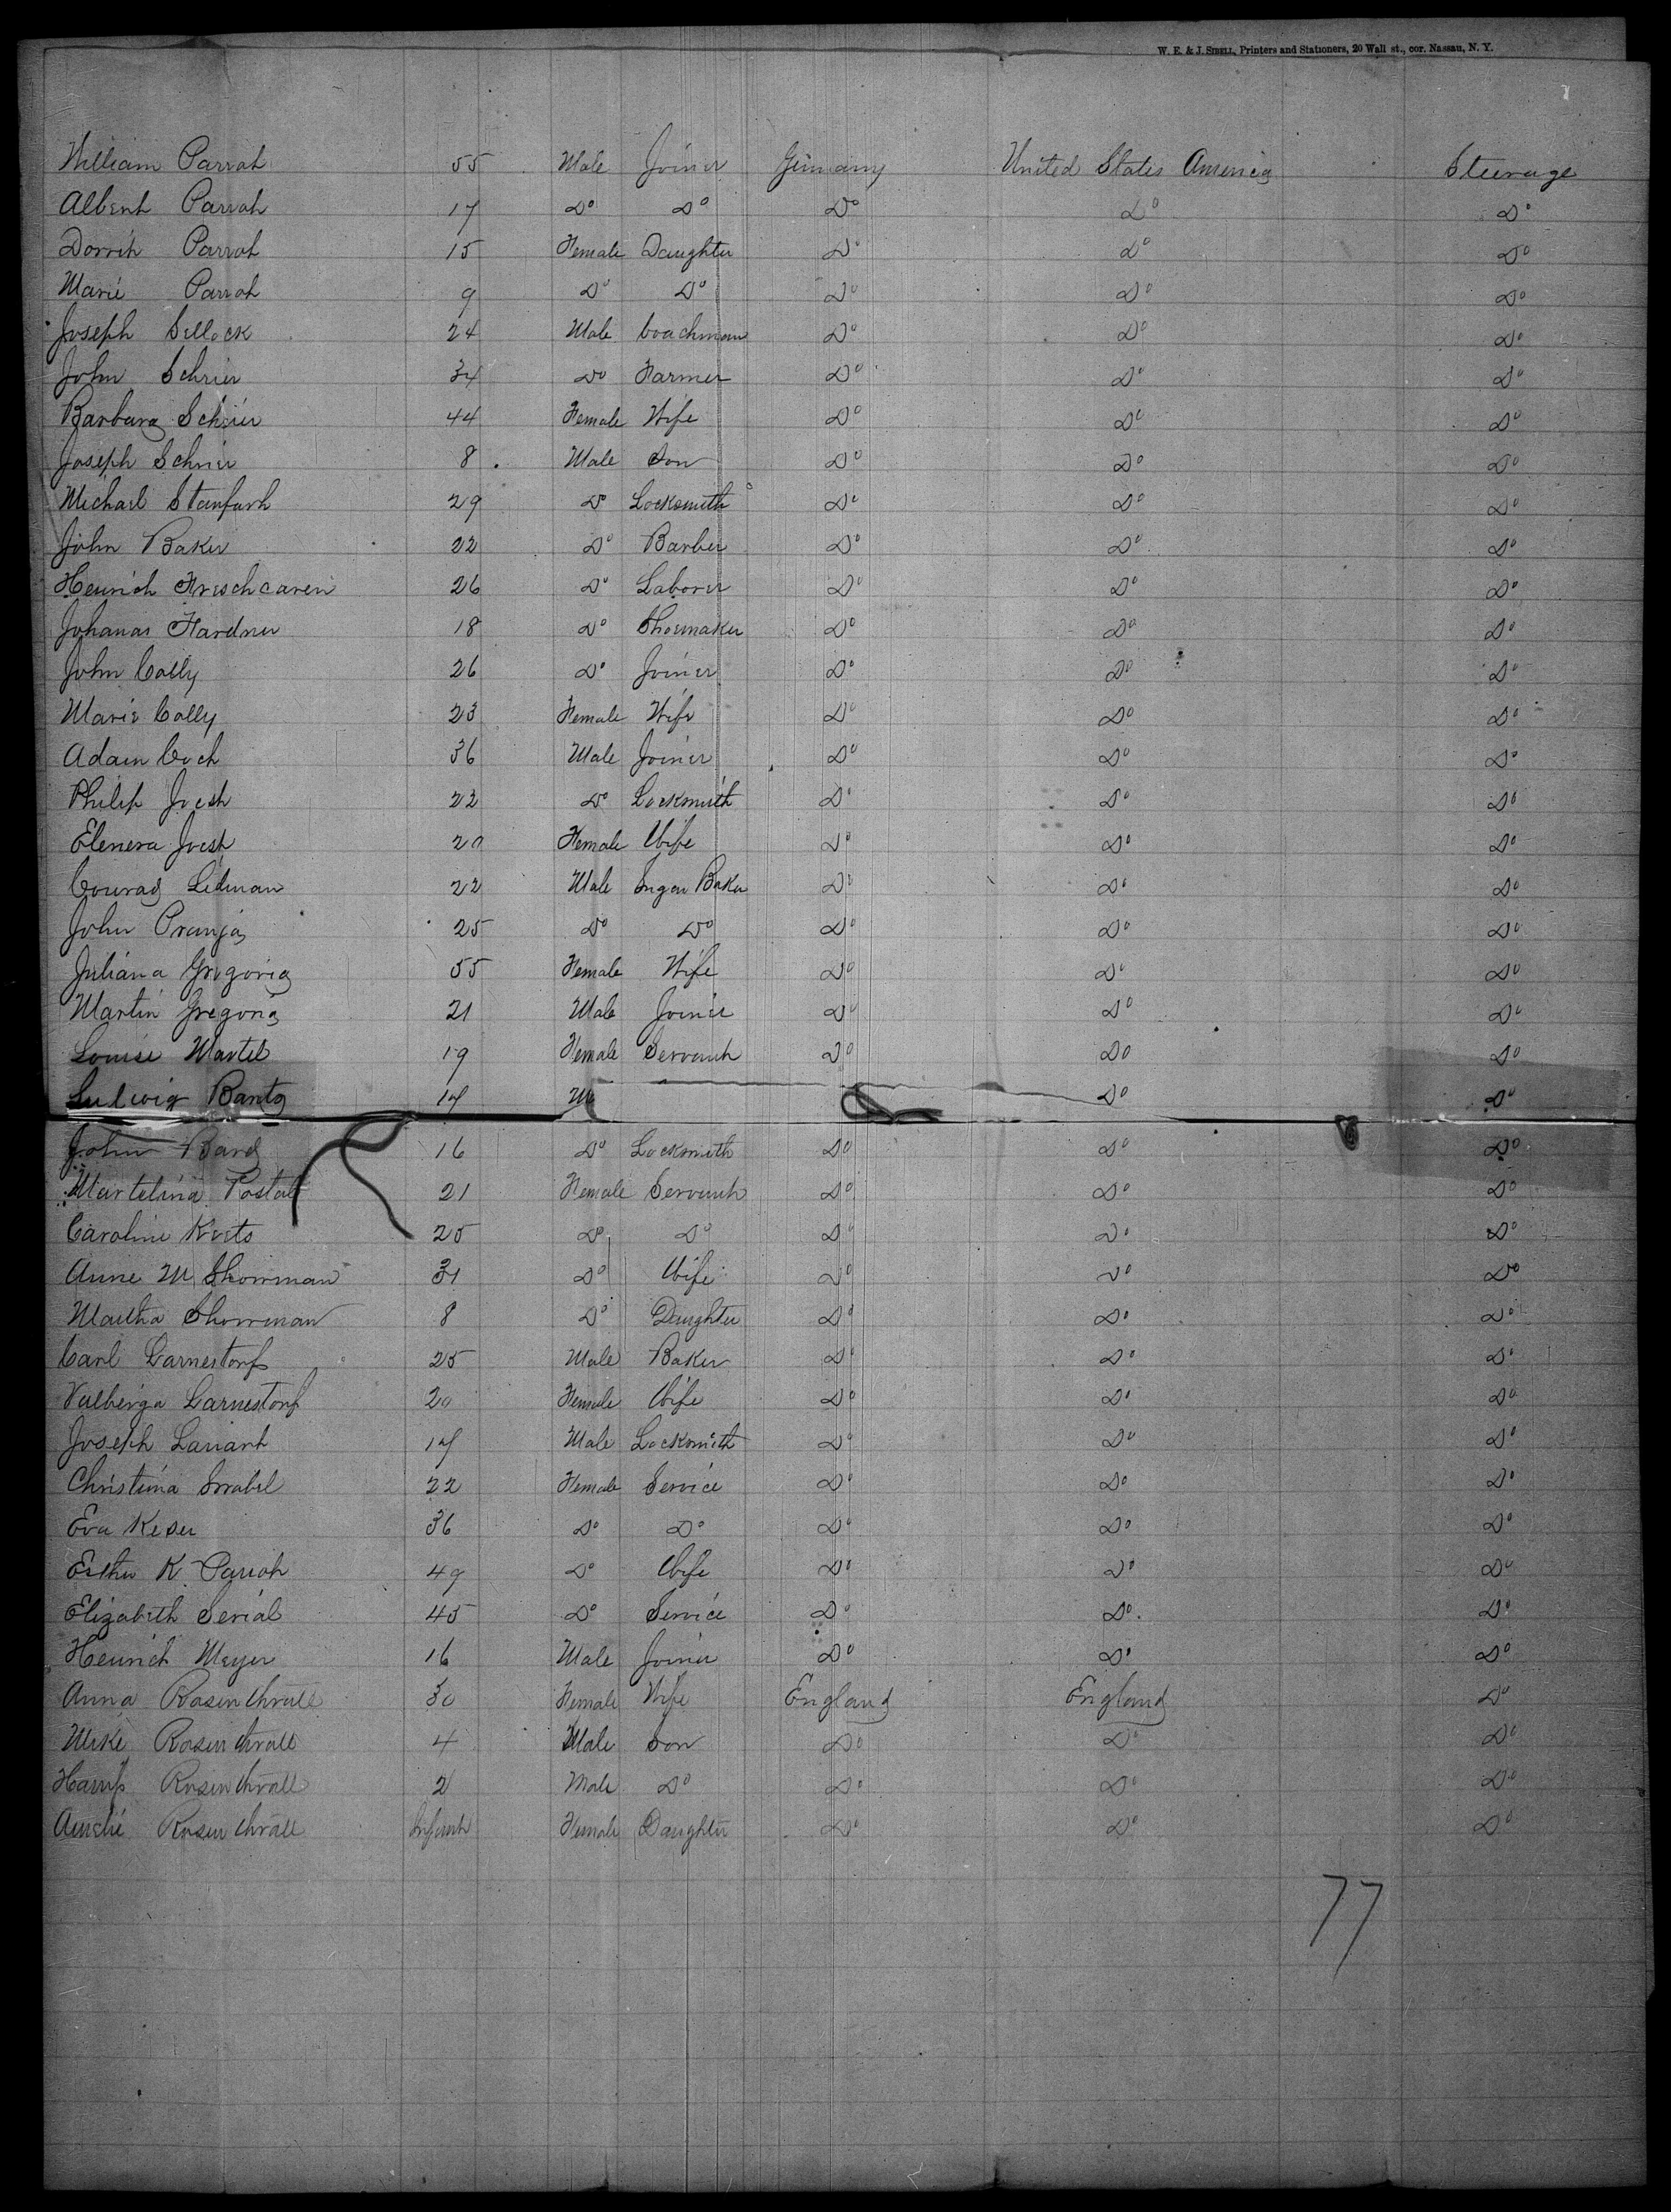 W. E. & J. SIBELL, Printers and Stationers, 20 Wall st., cor. Nassau, N. Y.
William Parrah 55 Male Joiner Germany United States America Steerage
Albert Parrah 17 Do Do Do Do Do
Parrah 15 Female Daughter Do Do Do
Marie Parrah 9 Do Do Do Do Do
Joseph Sellock 24 Male Coachman Do Do Do
John Schrier 34 Do Farmer Do Do Do
Barbara Schrier 44 Female Wife Do Do Do
Joseph Schrier 8 Male Son Do Do Do
Michael 29 Do Locksmith Do Do Do
John Baker 22 Do Barber Do Do Do
Heinrich 26 Do Laborer Do Do Do
Johanas Hardner 18 Do Shoemaker Do Do Do
John Colly 26 Do Joiner Do Do Do
Marie Colly 23 Female Wife Do Do Do
Adam Coch 36 Male Joiner Do Do Do
Philip 22 Do Locksmith Do Do Do
Elenera 20 Female Wife Do Do Do
Conrad Lidman 22 Male Sugar Baker Do Do Do
John 25 Do Do Do Do Do
Juliana Gregoria 55 Female Wife Do Do Do
Martin Gregoria 21 Male Joiner Do Do Do
Louise Martel 19 Female Servant Do Do Do
Ludwig Bantz 17 M Do Do
John Bard 16 Do Locksmith Do Do Do
Martelina Postal 21 Female Servant Do Do Do
Caroline 25 Do Do Do Do Do
Anne M Showman 31 Do Wife Do Do Do
Martha Showman 8 Do Daughter Do Do Do
Carl Larnestorf 25 Male Baker Do Do Do
Valberga Larnestorf 20 Female Wife Do Do Do
Joseph Lariant 17 Male Locksmith Do Do Do
Christina 22 Female Service Do Do Do
Eva Keser 36 Do Do Do Do Do
Esther K Parrah 49 Do Wife Do Do Do
Elizabeth Serial 45 Do Service Do Do Do
Heinrich Meyer 16 Male Joiner Do Do Do
Anna Rosenthrall 30 Female Wife England England Do
Mike Rosenthrall 4 Male Son Do Do Do
Rosenthrall 2 Male Do Do Do Do
Amelie Rosenthrall Infant Female Daughter Do Do Do
77